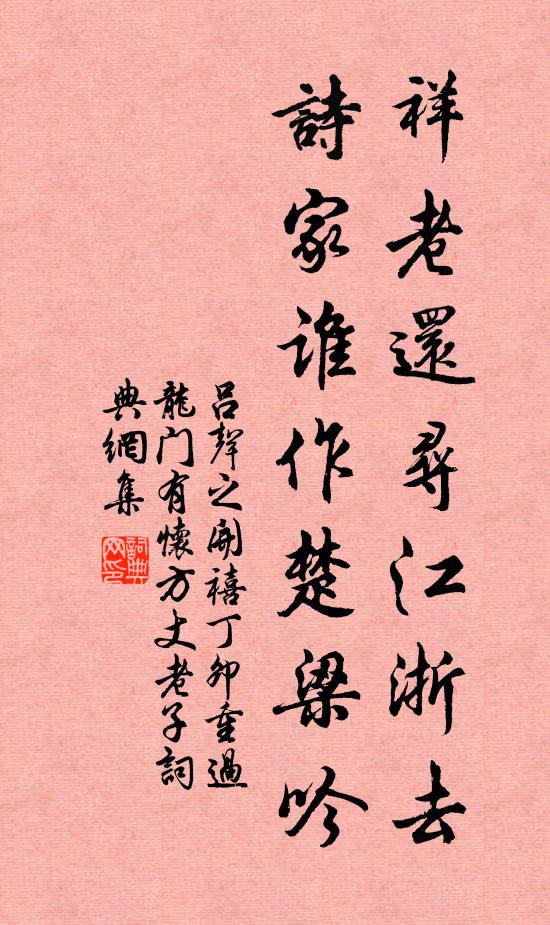 祥老還尋江浙去
詩家誰作楚梁吟
呂聲之開禧丁卯重過
龍门有懷方丈老子詞
典網集
詞典網印